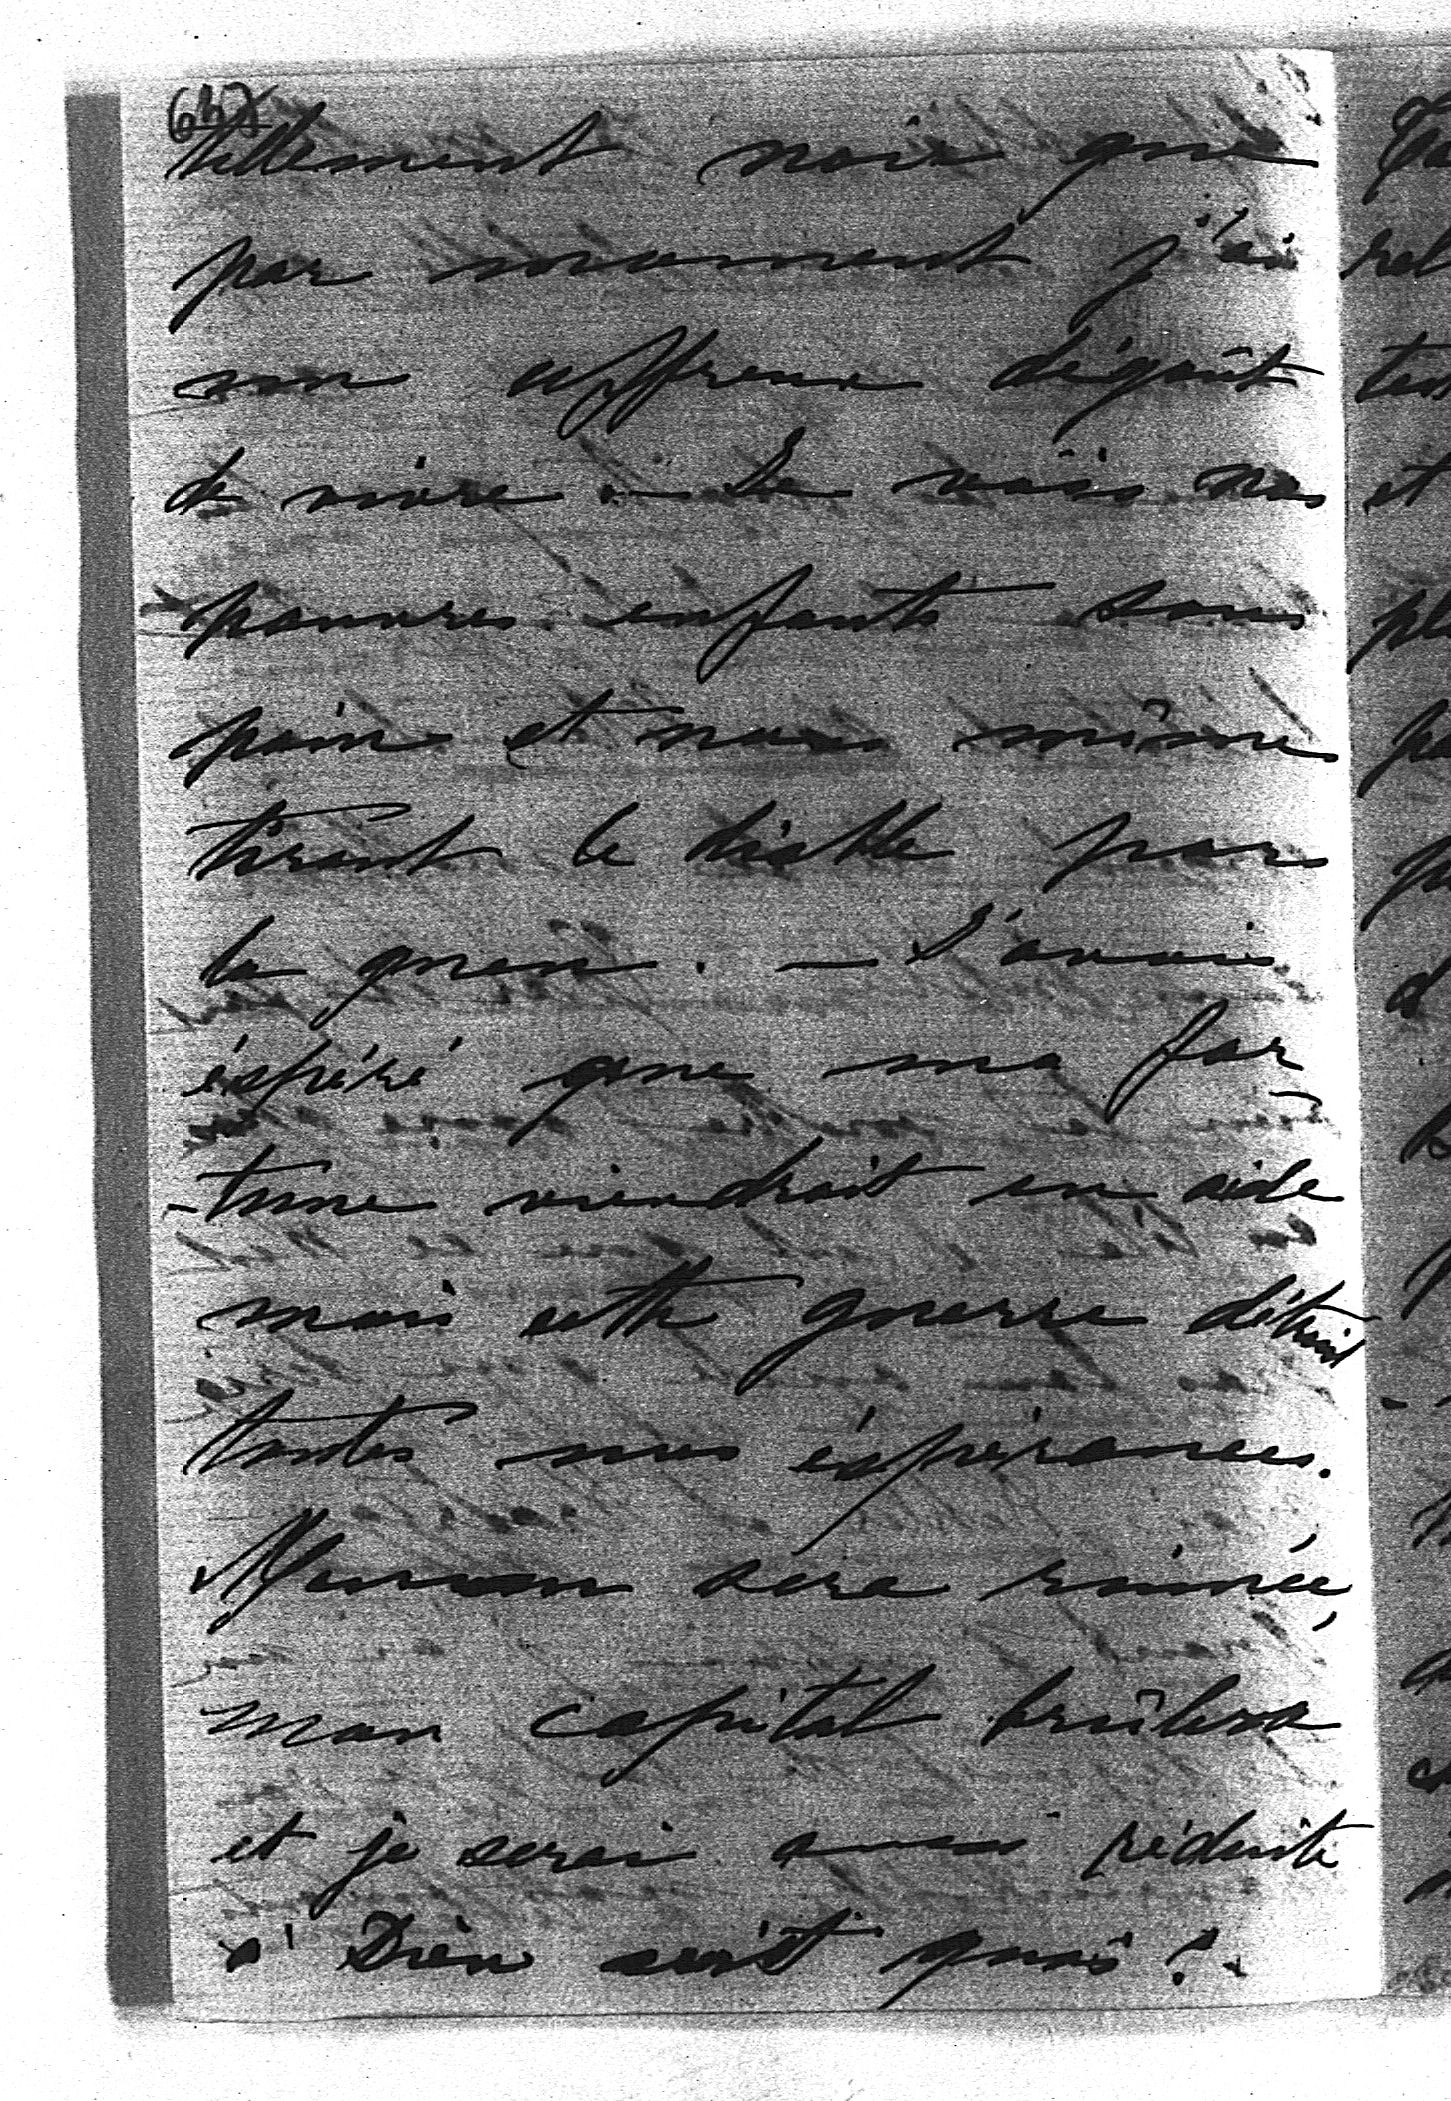 637
tellement noir que
par moment j'ai
un affreux dégoût
de vivre. — Je vois nos
pauvres enfants sans
pain et nous mêmes
tirant le diable par
la queue. — J'avais
éspéré que ma for
-tune viendrait en aide
mais cette guerre détruit
toutes mes éspérances.
sera ruinée,
mon capital brûlera
et je serai aussi réduite
à Dieu sait quoi?